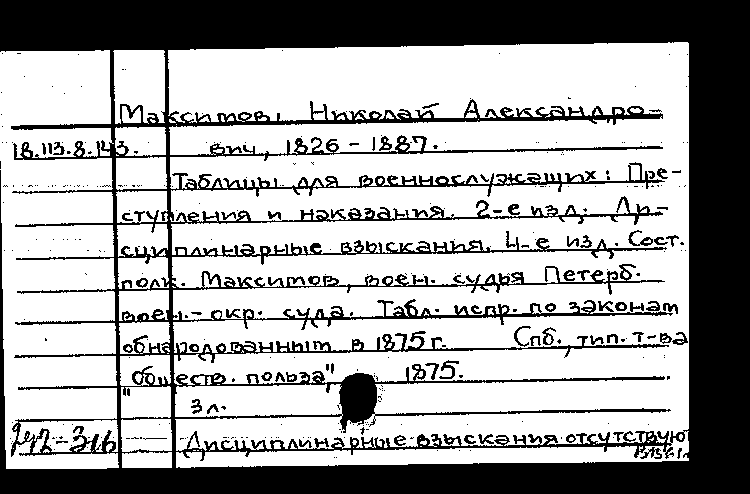 Максимов, Николай Александро-
18.113.8.143.
вич, 1826 - 1887.
Таблицы для военнослужащих: Пре-
ступления и наказания. 2-е изд. Ди-
сциплинарные взыскания. 4-е изд. Сост.
полк. Максимов, воен. судья Петерб.
воен.- окр. суда. Табл. испр. по законам
обнародованным в 1875 г. Спб., тип. т-ва
"Обществ. польза" 1875.
3 л.
Дисциплинарные взыскания отсутствую